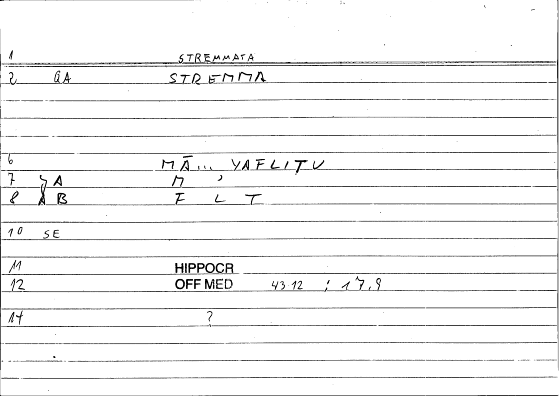 1 STREMMATA
2 GA STREMMA
6 MĀ... YAFLITU
7 ɔA M ʾ
8 AB F L T
10 SE
11 HIPPOCR
12 OFF MED 43 12 ; 17,9
14 ?